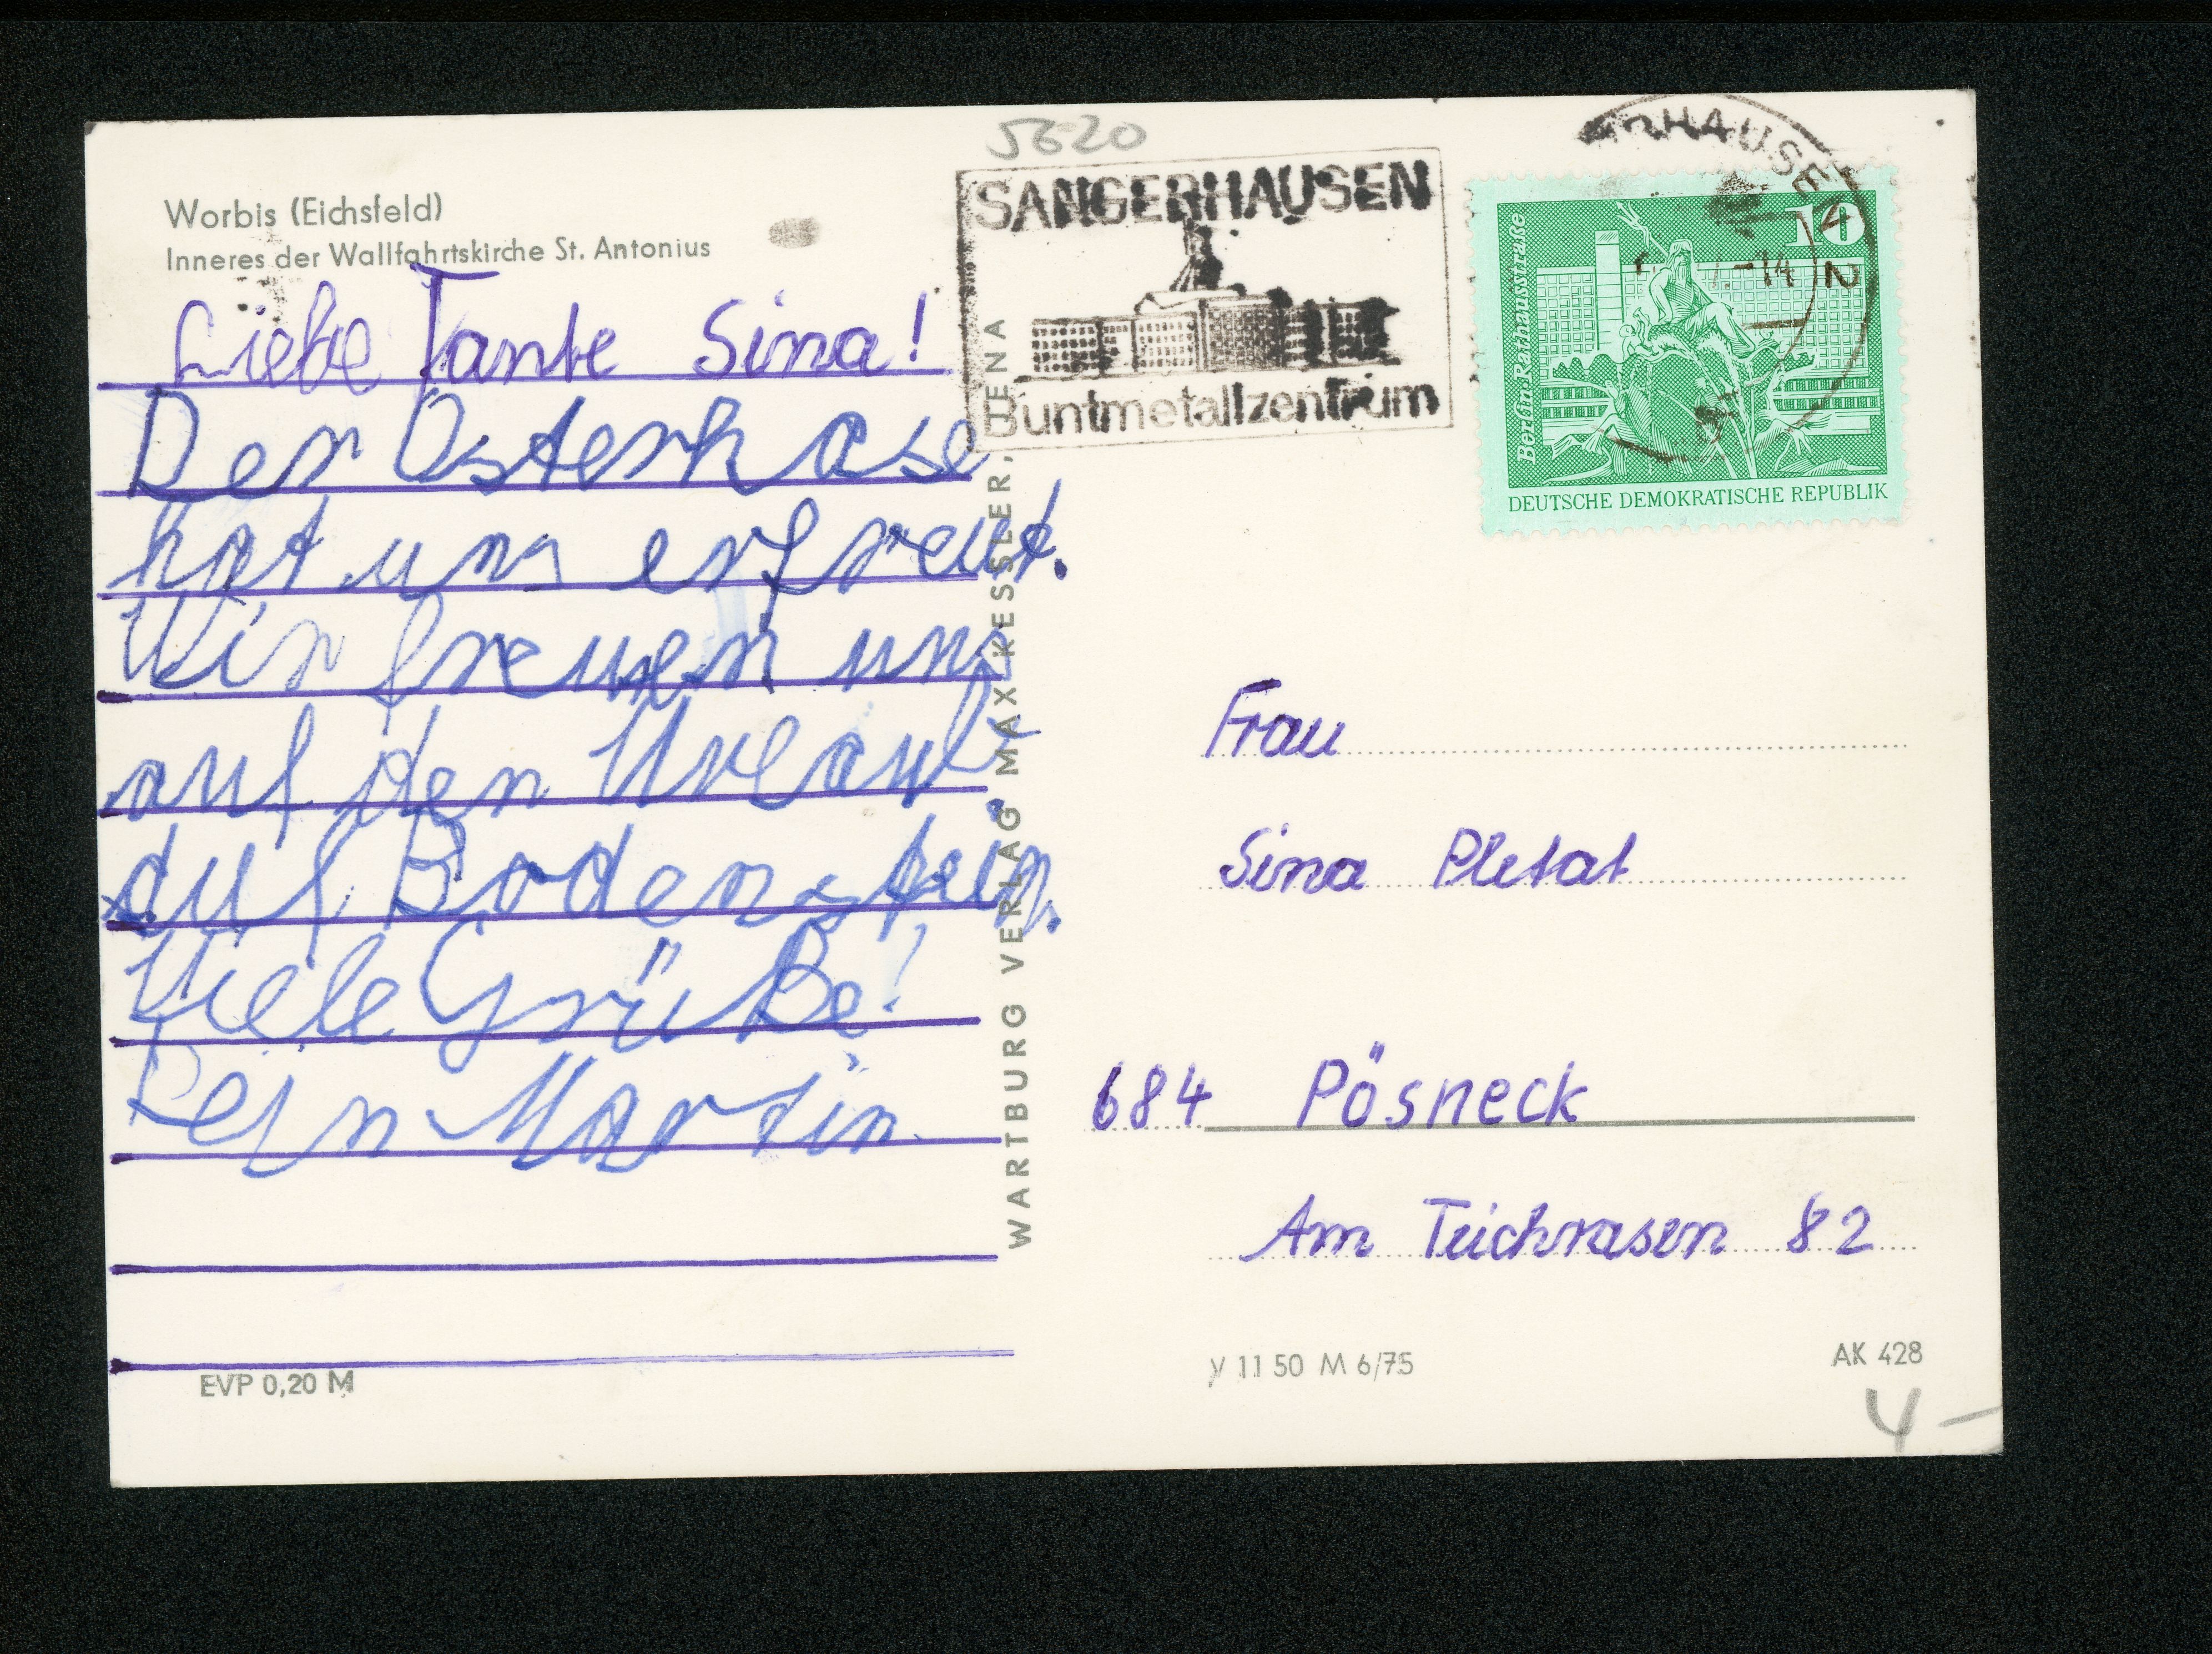 5620
Worbis (Eichsfeld)
Inneres der Wallfahrtskirche St. Antonius
Liebe Tante Sina!
Der Osterhase
hat uns erfreut.
Wir freuen uns
auf den Urlaub
auf Bodenstein.
Viele Grüße!
Dein Martin
EVP 0,20 M
WARTBURG VERLAG MAX KESSLER, JENA
SANGERHAUSEN
Buntmetallzentrum
-14
2
10
Berlin, Rathausstraße
DEUTSCHE DEMOKRATISCHE REPUBLIK
Frau
Sina Pletat
684 Pösneck
Am Teichrasen 82
V 11 50 M 6/75
AK 428
4-